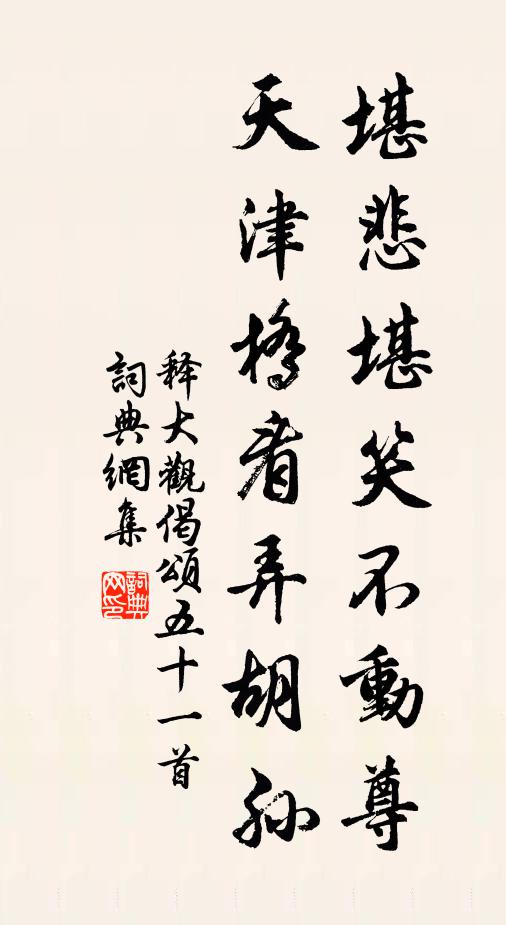 堪悲堪笑不動尊
天津橋看弄胡孙
释大觀偈頌五十一首
詞典網集
詞典网印